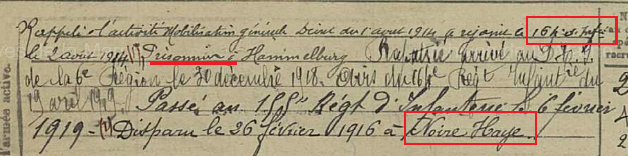 Rappelé à l'activité Mobilisation générale Décret du 1 aout 1914 a rejoint le 164e d'Infie
le 2 aout 1914 (1) Prisonnier à Hammelburg Rapatrié arrivé au D.
de la 6e Région le 30 décembre 1918. Régt Infanterie du
19 avril 1919 Passé au 155e Régt d'Infanterie le 6 février
1919 - (1) Disparu le 26 février 1916 à Noire Haye.
armée active.